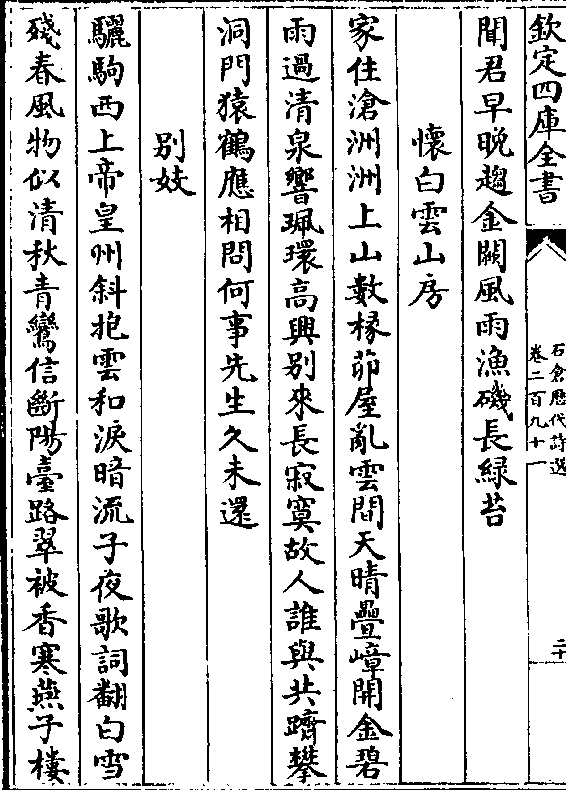 欽定四庫全書
石倉歷代詩選
卷二百九十一
二十
聞君早晚趨金闕風雨漁磯長緑苔
懷白雲山房
家住滄洲洲上山數椽茆屋亂雲間天晴疊嶂開金碧
雨過清泉響珮環高興别來長寂寞故人誰與共躋攀
洞門猿鶴應相問何事先生久未還
别妓
驪駒西上帝皇州斜抱雲和淚暗流子夜歌詞翻白雪
殘春風物似清秋青鸞信斷陽臺路翠被香寒燕子樓